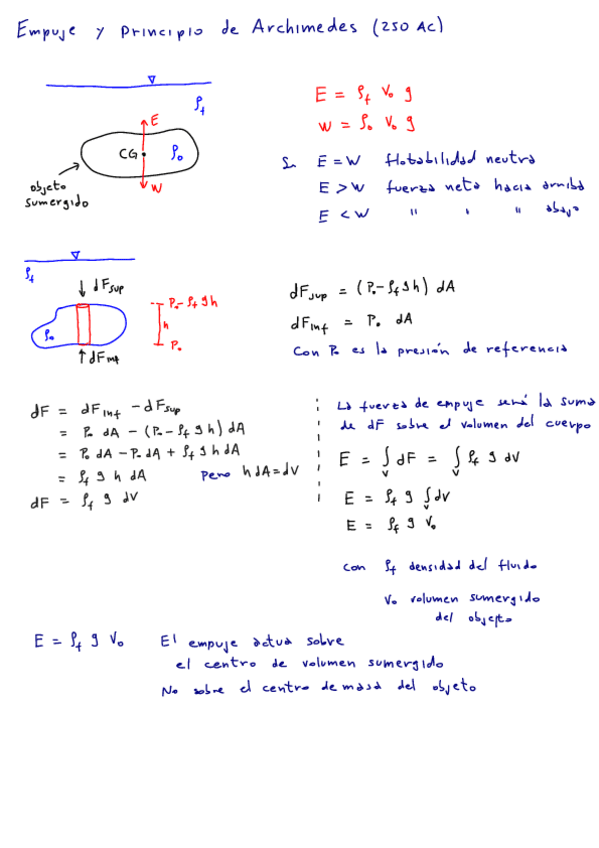 Empuje y Principio de Archimedes (250 AC)
ρf
E
CG ρo
W
objeto sumergido
E = ρf Vo g
W = ρo Vo g
Si E = W flotabilidad neutra
E > W fuerza neta hacia arriba
E < W " " " abajo
ρf
dFsup
ρo
dFinf
Po - ρf g h
h
Po
dFsup = (Po - ρf g h) dA
dFinf = Po dA
Con Po es la presión de referencia
dF = dFinf - dFsup
= Po dA - (Po - ρf g h) dA
= Po dA - Po dA + ρf g h dA
= ρf g h dA Pero h dA = dV
dF = ρf g dV
La fuerza de empuje será la suma
de dF sobre el volumen del cuerpo
E = ∫v dF = ∫v ρf g dV
E = ρf g ∫v dV
E = ρf g Vo
con ρf densidad del fluido
Vo volumen sumergido
del objeto
E = ρf g Vo El empuje actua sobre
el centro de volumen sumergido
No sobre el centro de masa del objeto